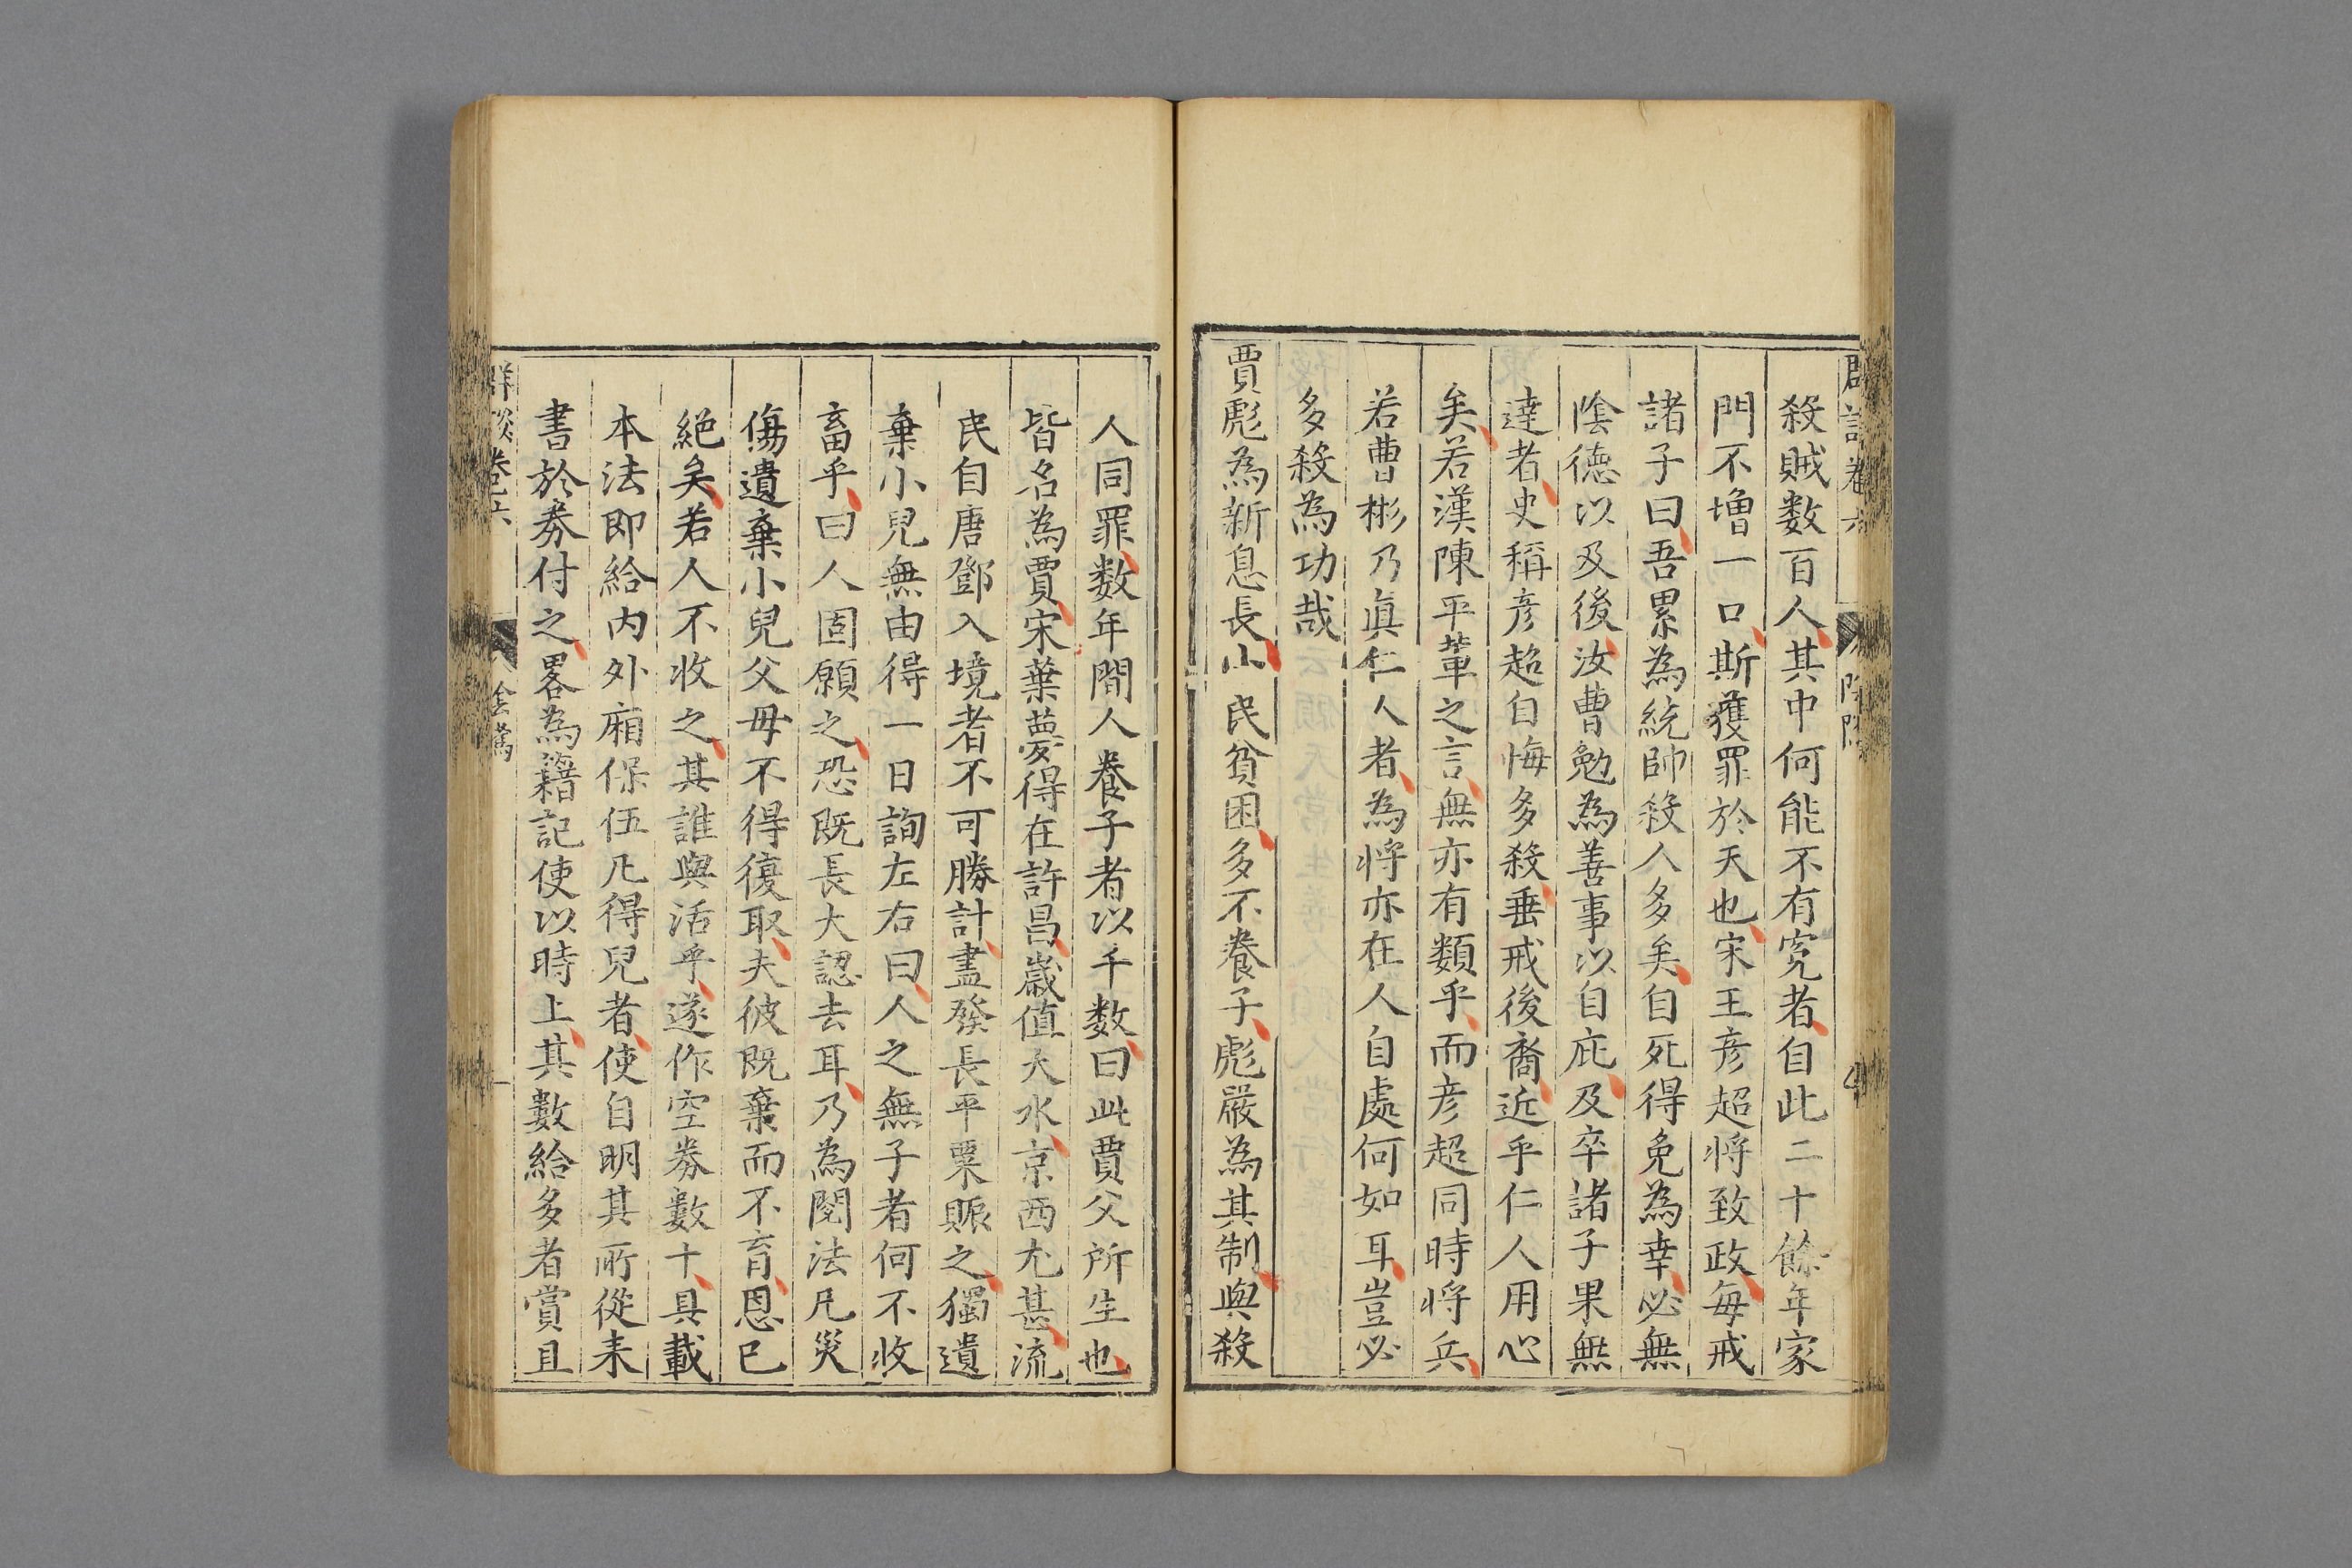 殺賊数百人其中何能不有寃者自此二十餘年家
門不增一口斯獲罪於天也宋王彦超将致政每戒
諸子曰吾累為統帥殺人多矣自死得免為幸必無
陰德以及後汝曹勉為善事以自庇及卒諸子果無
達者史稱彦超自悔多殺垂戒後裔近乎仁人用心
矣若漢陳平輩之言無亦有類乎而彦超同時将兵
若曹彬乃眞仁人者為将亦在人自處何如耳豈必
多殺為功哉
賈彪為新息長小民貧困多不養子彪嚴為其制與殺
人同罪数年間人養子者以千数曰此賈父所生也
皆名為賈宋葉夢得在許昌歳值大水京西尤甚流
民自唐鄧入境者不可勝計盡發長平粟賑之獨遺
棄小兒無由得一日詢左右曰人之無子者何不收
畜乎曰人固願之恐既長大認去耳乃為閱法凡災
傷遺棄小兒父母不得復取夫彼既棄而不育恩已
絕矣若人不收之其誰與活乎遂作空券數十具載
本法即給内外廂保伍凡得兒者使自明其所從来
書於券付之畧為籍記使以時上其數給多者賞且
群談卷六